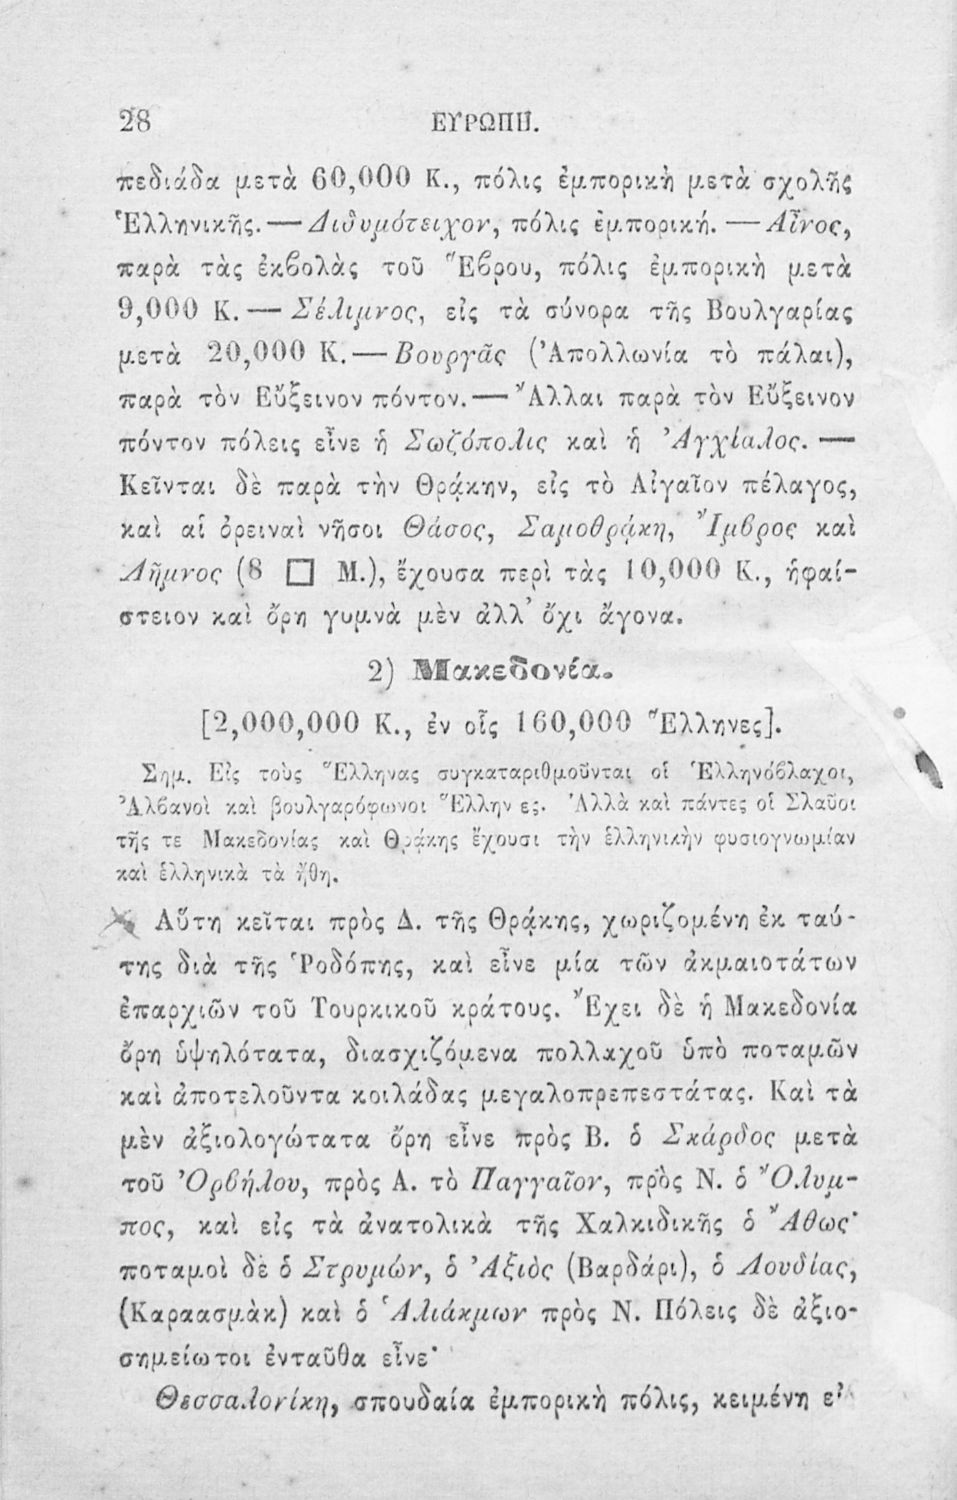 28 ΕΥΡΩΠΗ.
πεδιάδα μετὰ 60,000 Κ., πόλις ἐμπορικὴ μετὰ σχολῆς
Ἑλληνικῆς. — Διδυμότειχον, πόλις ἐμπορική. — Αἶνος,
παρὰ τὰς ἐκβολὰς τοῦ Ἕβρου, πόλις ἐμπορικὴ μετὰ
9,000 Κ. — Σέλιμνος, εἰς τὰ σύνορα τῆς Βουλγαρίας
μετὰ 20,000 Κ. — Βουργᾶς (Ἀπολλωνία τὸ πάλαι),
παρὰ τὸν Εὔξεινον πόντον. — Ἄλλαι παρὰ τὸν Εὔξεινον
πόντον πόλεις εἶνε ἡ Σωζόπολις καὶ ἡ Ἀγχίαλος. —
Κεῖνται δὲ παρὰ τὴν Θρᾴκην, εἰς τὸ Αἰγαῖον πέλαγος,
καὶ αἱ ὀρειναὶ νῆσοι Θάσος, Σαμοθρᾴκη, Ἴμβρος καὶ
Λῆμνος (8 □ Μ.), ἔχουσα περὶ τὰς 10,000 Κ., ἡφαί-
στειον καὶ ὄρη γυμνὰ μὲν ἀλλ’ ὄχι ἄγονα.
2) Μακεδονία.
[2,000,000 Κ., ἐν οἷς 160,000 Ἕλληνες].
Σημ. Εἰς τοὺς Ἕλληνας συγκαταριθμοῦνται οἱ Ἑλληνόβλαχοι,
Ἀλβανοὶ καὶ βουλγαρόφωνοι Ἕλλην ες. Ἀλλὰ καὶ πάντες οἱ Σλαῦοι
τῆς τε Μακεδονίας καὶ Θρᾴκης ἔχουσι τὴν ἑλληνικὴν φυσιογνωμίαν
καὶ ἑλληνικὰ τὰ ἤθη.
Αὕτη κεῖται πρὸς Δ. τῆς Θρᾴκης, χωριζομένη ἐκ ταύ-
της διὰ τῆς Ῥοδόπης, καὶ εἶνε μία τῶν ἀκμαιοτάτων
ἐπαρχιῶν τοῦ Τουρκικοῦ κράτους. Ἔχει δὲ ἡ Μακεδονία
ὄρη ὑψηλότατα, διασχιζόμενα πολλαχοῦ ὑπὸ ποταμῶν
καὶ ἀποτελοῦντα κοιλάδας μεγαλοπρεπεστάτας. Καὶ τὰ
μὲν ἀξιολογώτατα ὄρη εἶνε πρὸς Β. ὁ Σκάρδος μετὰ
τοῦ Ὀρβήλου, πρὸς Α. τὸ Παγγαῖον, πρὸς Ν. ὁ Ὄλυμ-
πος, καὶ εἰς τὰ ἀνατολικὰ τῆς Χαλκιδικῆς ὁ Ἄθως·
ποταμοὶ δὲ ὁ Στρυμών, ὁ Ἀξιὸς (Βαρδάρι), ὁ Λουδίας,
(Καραασμὰκ) καὶ ὁ Ἁλιάκμων πρὸς Ν. Πόλεις δὲ ἀξιο-
σημείωτοι ἐνταῦθα εἶνε·
Θεσσαλονίκη, σπουδαία ἐμπορικὴ πόλις, κειμένη εἰ